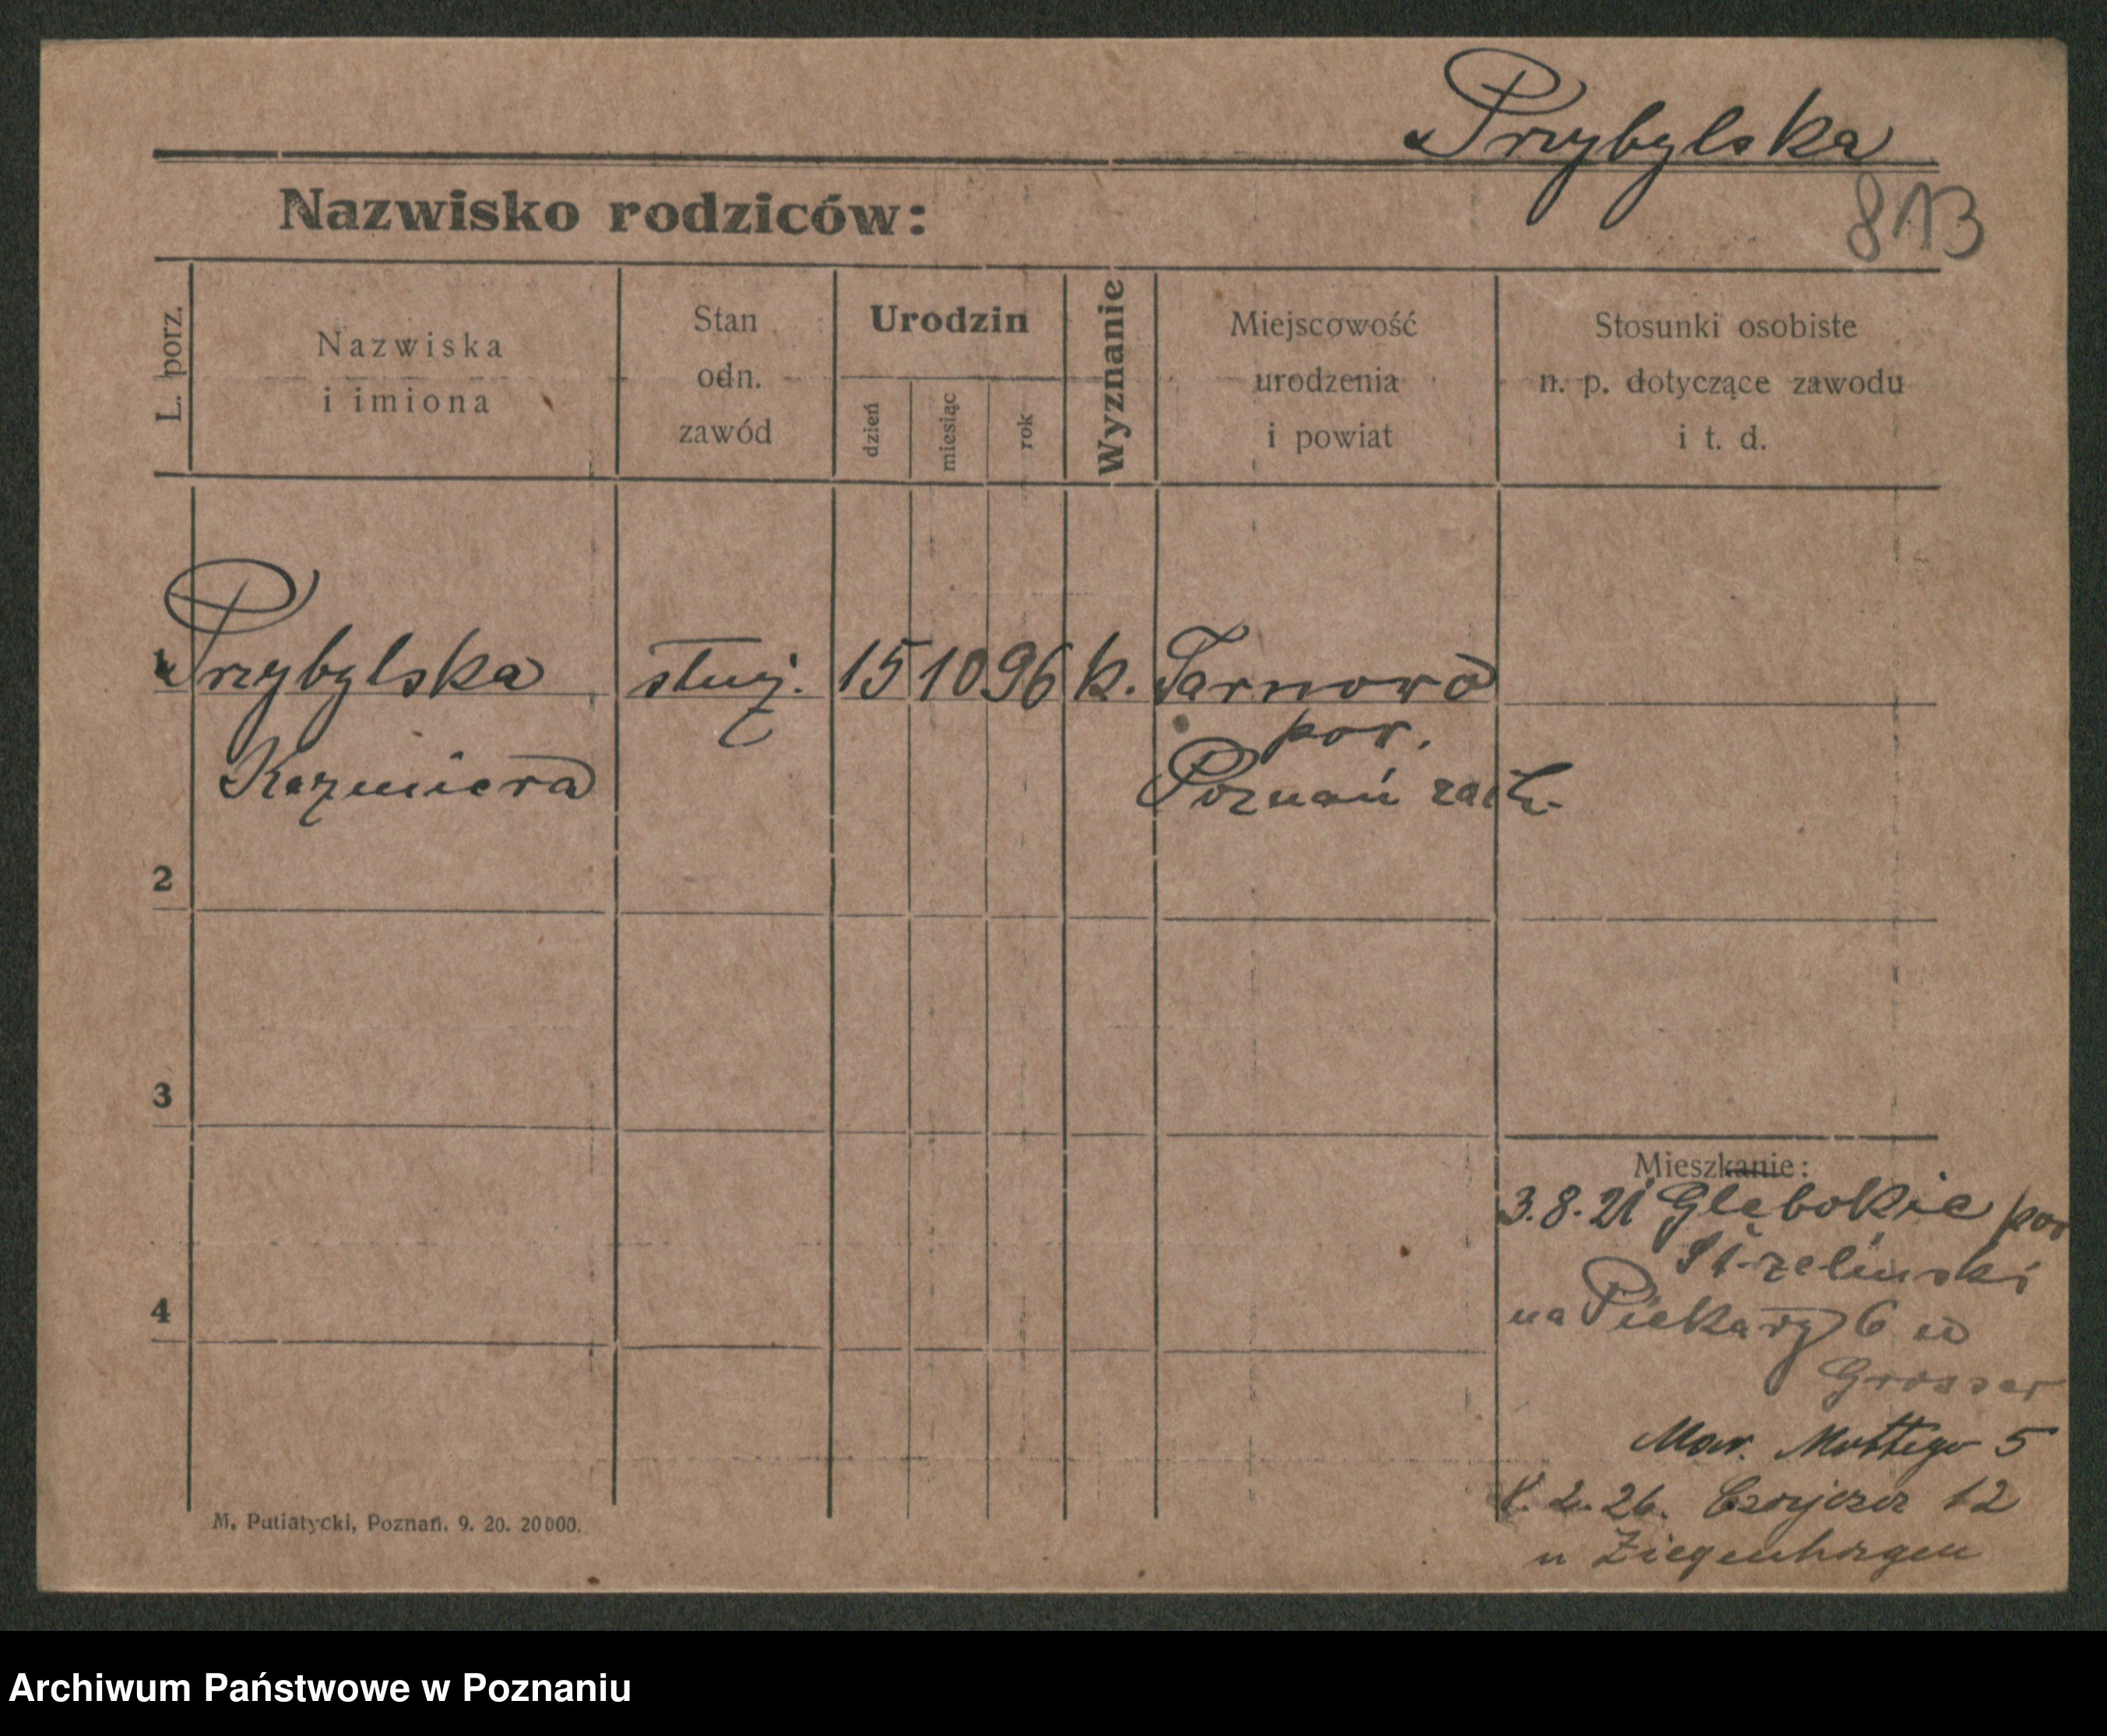 Przybylska
813
Nazwisko rodziców:
L. porz.
Nazwiska
i imiona
Stan
odn.
zawód
Urodzin
dzień
miesiąc
rok
Wyznanie
Miejscowość
urodzenia
i powiat
Stosunki osobiste
n. p. dotyczące zawodu
i t. d.
1 Przybylska służ. 15 10 96 k. Tarnowo
pow.
Kazmiera Poznań zach.
2
3
4
Mieszkanie:
3.8.21 Głębokie pow
Strzelinski
na Piekary 6 u
Grosser
Mar. Mottego 5
2. 26. 12
u Ziegenhagen
M. Putiatycki, Poznań. 9. 20. 20000.
Archiwum Państwowe w Poznaniu